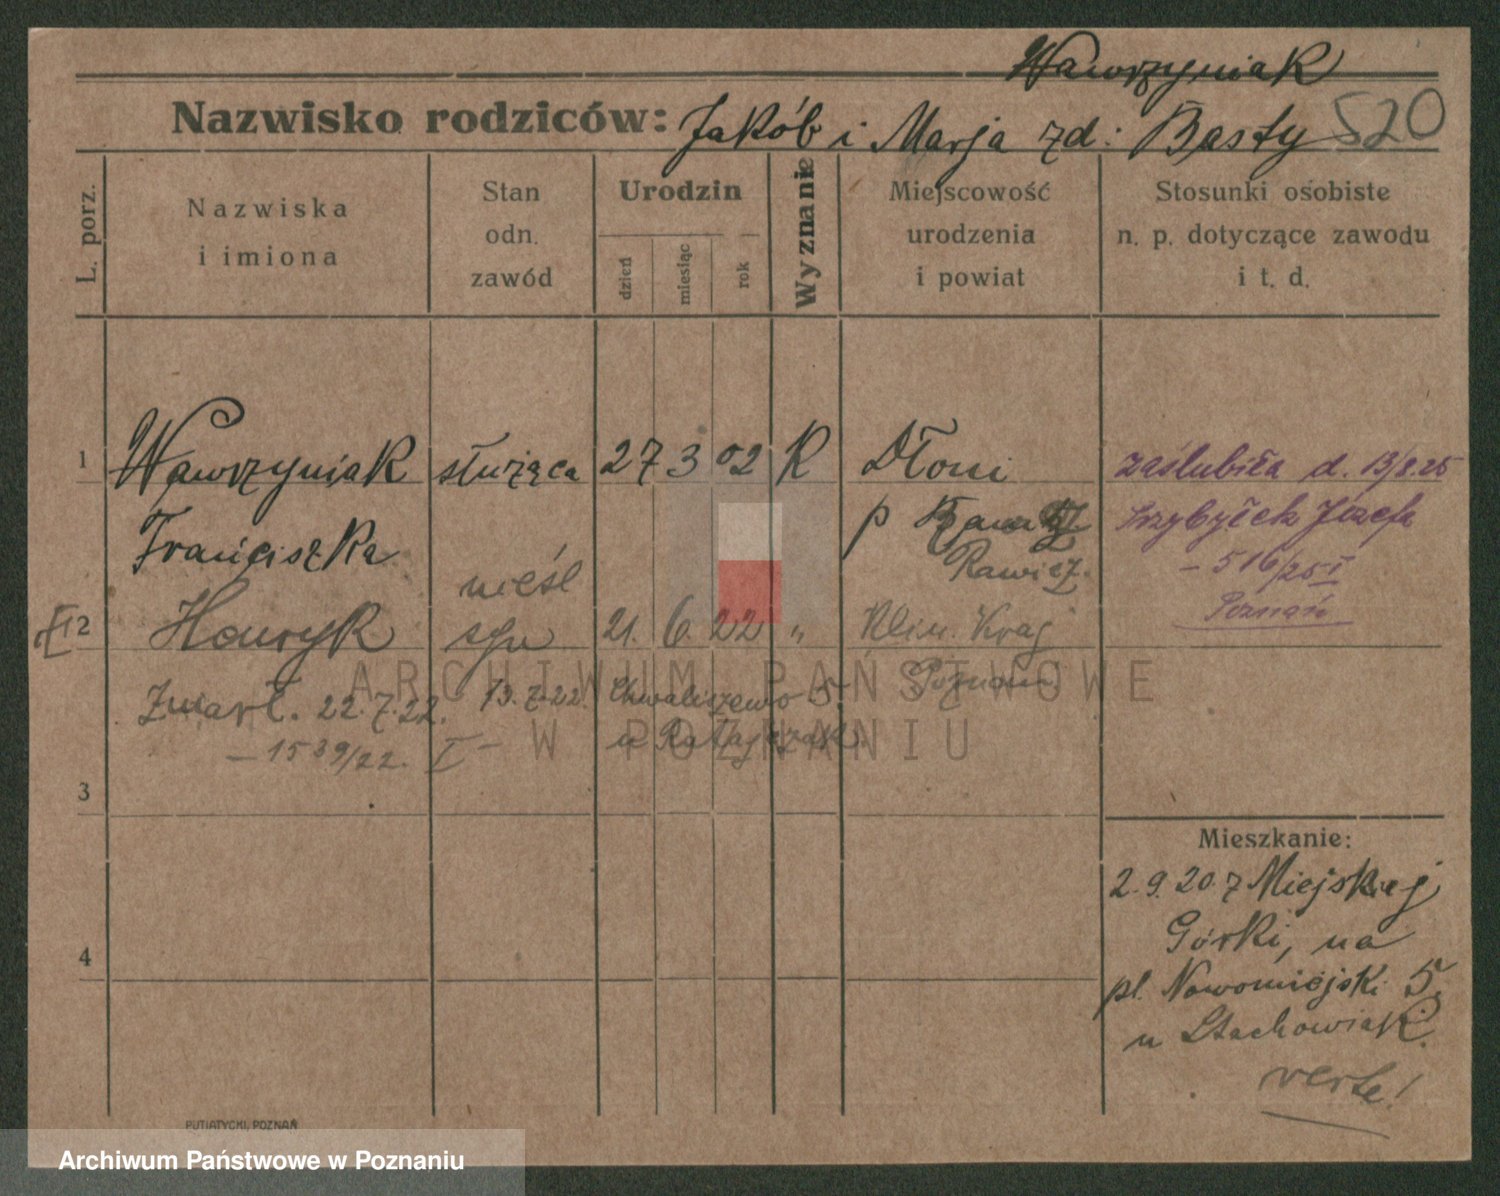 Wawrzyniak
Nazwisko rodziców: Jakób i Marja zd: Basty 520
L. porz.
Nazwiska
i imiona
Stan
odn.
zawód
Urodzin
dzień
miesiąc
rok
Wyznanie
Miejscowość
urodzenia
i powiat
Stosunki osobiste
n. p. dotyczące zawodu
i t. d.
1 Wawrzyniak służąca 27 3 02 K Dłoni zaślubiła d. 13/8.25
Franciszka p Rawicz. Przybyłek Józefa
- 516/25 I
Poznań
nieśl
2 Henryk syn 21. 6. 22 " Klin. Kraj
Poznań
Zmarł. 22.7.22. 13.7.22. Chwaliszewo 5.
- 1539/22. I - u Ratajczak.
3
4
Mieszkanie:
2.9.20 z Miejskiej
Górki, na
pl. Nowomiejski 5
u Stachowiak.
verte!
PUTIATYCKI, POZNAŃ
ARCHIWUM PAŃSTWOWE
W POZNANIU
Archiwum Państwowe w Poznaniu